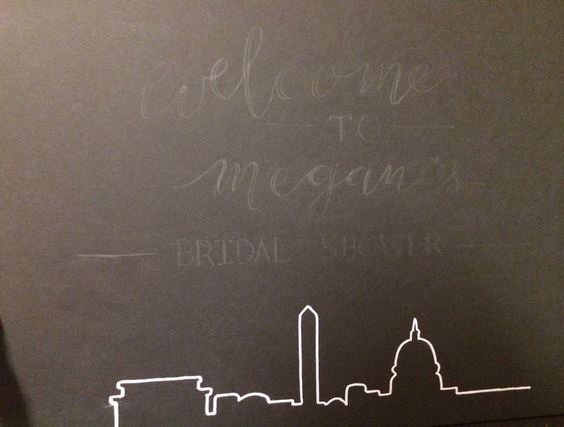 welcome
TO
megan's
BRIDAL SHOWER